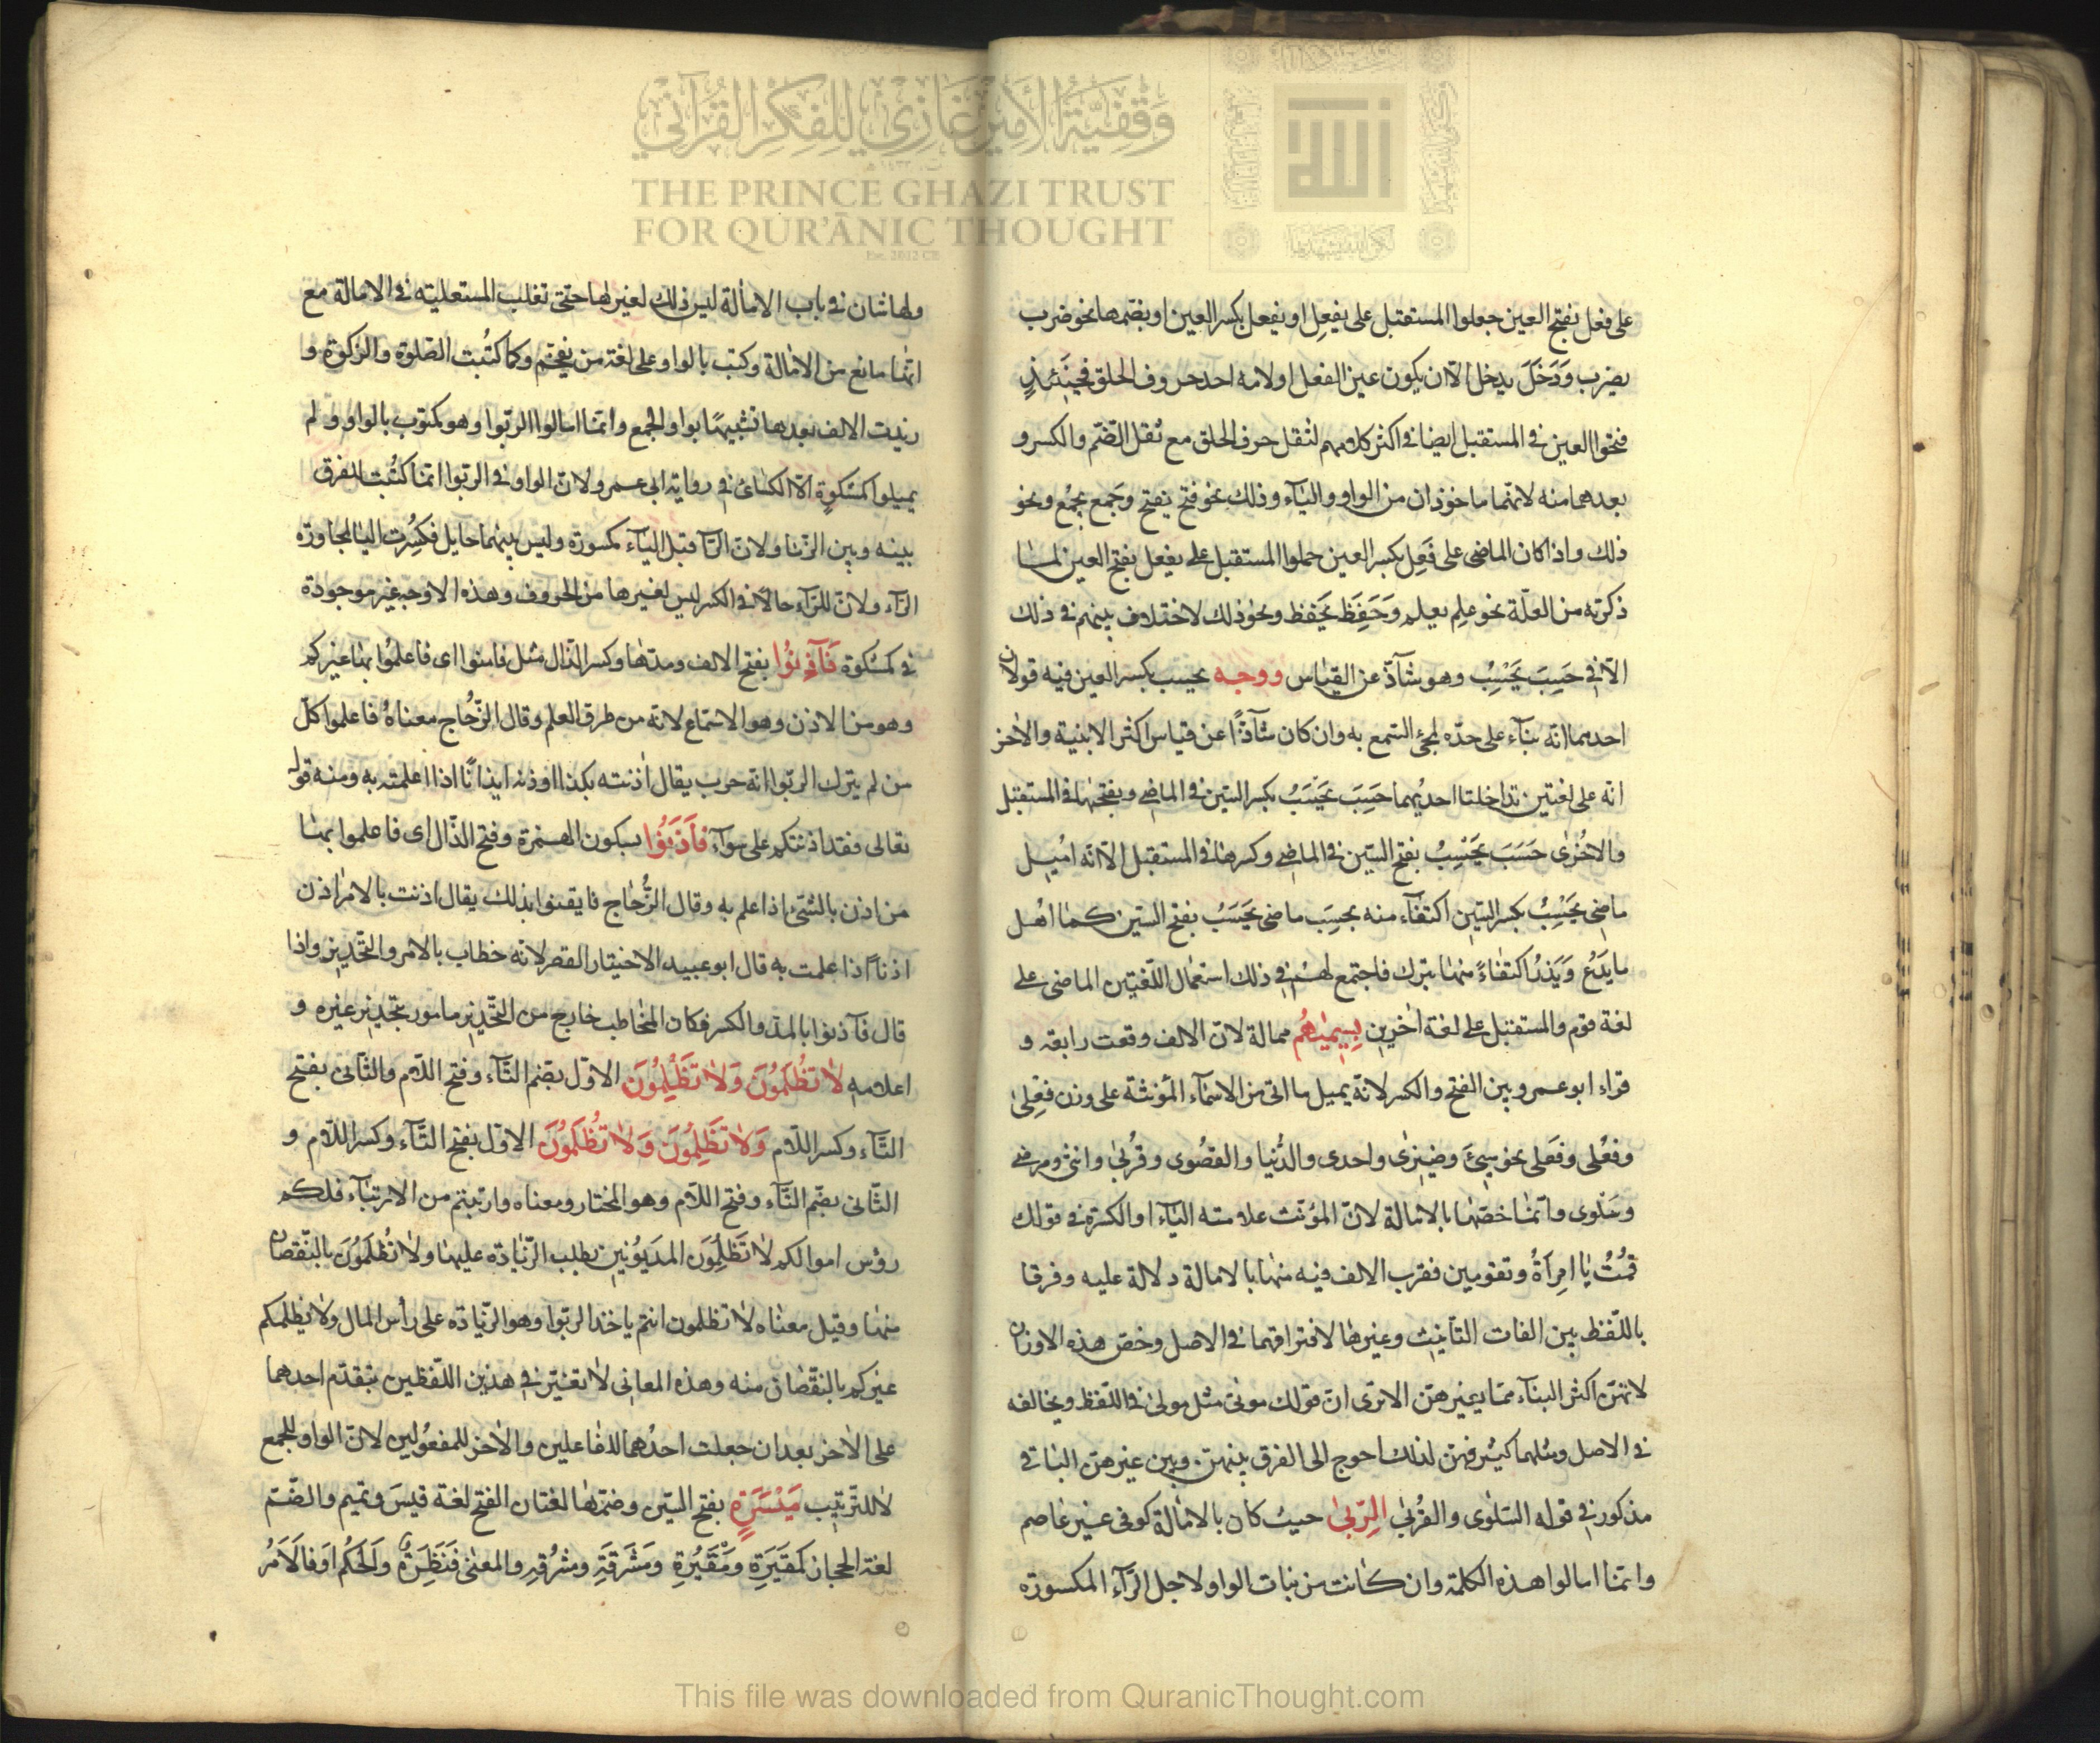 وَقْفِيَّةُ الأَمِيرِ غَازِي لِلْفِكْرِ القُرْآنِي
THE PRINCE GHAZI TRUST
FOR QUR'ĀNIC THOUGHT
Est. 2012 CE
على فعل بفتح العين جعلوا المستقبل على يفعِل او يفعل بكسر العين او بضمها نحو ضرب
يضرب وَدَخَلَ يدخل الّا ان يكون عين الفعل اولامه احد حروف الحلق فحينَئذٍ
فتحوا العين في المستقبل ايضا في اكثر كلامهم لثقل حرف الحلق مع ثقل الضّم والكسر و
بعدهما منه لانهّما ماخوذان من الواو والياء وذلك نحو فتح يفتح وجَمع يجمع ونحو
ذلك واذا كان الماضى على فَعِل بكسر العين حملوا المستقبل على يفعل بفتح العين لما
ذكرته من العلّة نحو علِم يعلم وَحَفِظَ يَحفظ ونحو ذلك لاختلاف بينهم في ذلك
الّا في حَسِبَ يَحْسِبُ وهو شآذّ عن القياس ووجه يحسب بكسر العين فيه قولان
احدهما انّه بناء على حدّه لمجئ السّمع به وان كان شآذّاً عن قياس اكثر الابنية والاخر
انه على لغتين تداخلتا احديهما حَسِبَ يَحْسَبُ بكسر السّين في الماضى وبفتحها في المستقبل
والاخرٰى حَسَبَ يَحْسِبُ بفتح السّين في الماضى وكسرها في المستقبل الّا انّه اهمل
ماضى يحْسِبُ بكسر السّين اكتفاء منه بحسِب ماضى يَحسَبُ بفتح السين كما اهمل
ماض يَدَعُ وَيَذرُ اكتفاءً منهما بترك فاجتمع لهم في ذلك استعمال اللّغتين الماضى على
لغة قوم والمستقبل على لغة اخرين بِسِيمٰيهُم ممالة لانّ الالف وقعت رابعة و
قراء ابوعمرو بين الفتح والكسر لانّه يميل ما اتى من الاسماء المؤنثة على وزن فِعِلىٰ
وفعُلى وفَعَلى نحو وضيزٰى واحدى والدُّنيا والقصُوى وقُربىٰ وانثى ومرضى
وسَلوى وانّما خصّها بالامالة لانّ المؤنّث علامته الياء او الكسرة في قولك
قمُتُ يا امرأةُ وتقومين فقرب الالف فيه منها بالامالة دلالة عليه وفرقا
باللّفظ بين الفات التأنيث وغيرها لافتراقهما في الاصل وخصّ هذه الاوزان
لانهّنّ اكثر البناء ممّا يميزهنّ الا ترى انّ قولك موتى مثل مولىٰ في اللّفظ ويخالفه
في الاصل ومثلهما كثير فهنّ لذلك احوج الى الفرق بينهنّ وبين غيرهنّ الباقي
مذكور في قوله السّلوى والقُربىٰ الرّبىٰ حيث كان بالامالة كوفى غير عاصم
وانّما امالوا هذه الكلمة وان كانت من بنات الواو لاجل الرّاء المكسورة
ولها شان في باب الامالة ليس ذلك لغيرها حتى تغلب المستعلية في الامالة مع
انها مانع من الامالة وكتب بالواو على لغة من يفخّم وكما كتُبت الصّلوة والزّكوة و
زيدت الالف بعدها تشبيهًا بواو الجمع وانمّا امالوا الربوا وهو مكتوب بالواو ولم
يميلوا كمشكوةٍ الّا الكسائى في رواية ابى عمرو ولانّ الواو في الربوا انّما كتُبت للفرق
بينه وبين الزّنا ولانّ الرّآ قبل الياء مكسورة وليس بينهما حايل فكسرت اليا لمجاورة
الرّاء ولانّ للرّاء حالاً في الكسر ليس لغيرها من الحروف وهذه الاوجه غير موجودة
في كمشكوة فَآذِنوُا بفتح الالف ومدّها وكسر الذّال مثل فامنوا اى فاعلموُا بها غيركم
وهو من الاذن وهو الاستماع لانّه من طرق العلم وقال الزّجاج معناهُ فاعلموا كلّ
من لم يترك الربوا انّه حرب يقال اٰذنته بكذا اوذنه ايذانًا اذا اعلمته به ومنه قوله
تعالى فقد اذنتكم على سوآء فَأذَنوُا بسكون الهمزة وفتح الذّال اى فاعلموا بها
من اذن بالشئ اذا علم به وقال الزُّجاج فايقنوا بذلك يقال اذنت بالامر اذن
اذناً اذا علمت به قال ابوعبيد الاختيار القصر لانّه خطاب بالامر والتحّذير واذا
قال فآذنوا بالمدّ والكسر فكان المخاطب خارج من التّحذير مامور بتحّذير غيره و
اعلامه لاٰ تُظْلَمُونَ وَلاٰ تَظْلِمُونَ الاوّل بضّم التّاء وفتح اللّام والثّانى بفتح
التّاء وكسر اللّام وَلاٰ تَظْلِمُونَ وَلاٰ تُظْلَمُونَ الاوّل بفتح التّاء وكسر اللّام و
الثّانى بضّم التّاء وفتح اللّام وهو المختار ومعناه وارتبتم من الارتياء فلكم
رؤس اموالكم لاٰ تَظْلِمُونَ المَديوُنين بطلب الزّيادة عليها ولاٰ تُظْلَمُونَ بالنّقصان
منها وقيل معناه لاٰ تظلمون انتم ياخذ الربّوا وهو الزّيادة على رأس المال ولاٰ يظلمكم
غيركم بالنقّصان منه وهذه المعانى لاٰ تغيّر في هذين اللّفظين بتقدّم احدهما
على الاٰخر بعد ان جعلت احدُهما للفاعلين والاٰخر للمفعوُلين لانّ الواو للجمع
لا للتّرتيب مَيْسَرَةٍ بفتح السّين وضمّها لغتان الفتح لغة قيسَ وتميم والضّم
لغة الحجاز كمَقبَرَةِ ومَقْبُرةِ ومَشْرَقَةِ ومشرُقةِ والمعنى فَنَظِرَةٌ وَالحكُم اَوفالاَمرُ
This file was downloaded from QuranicThought.com